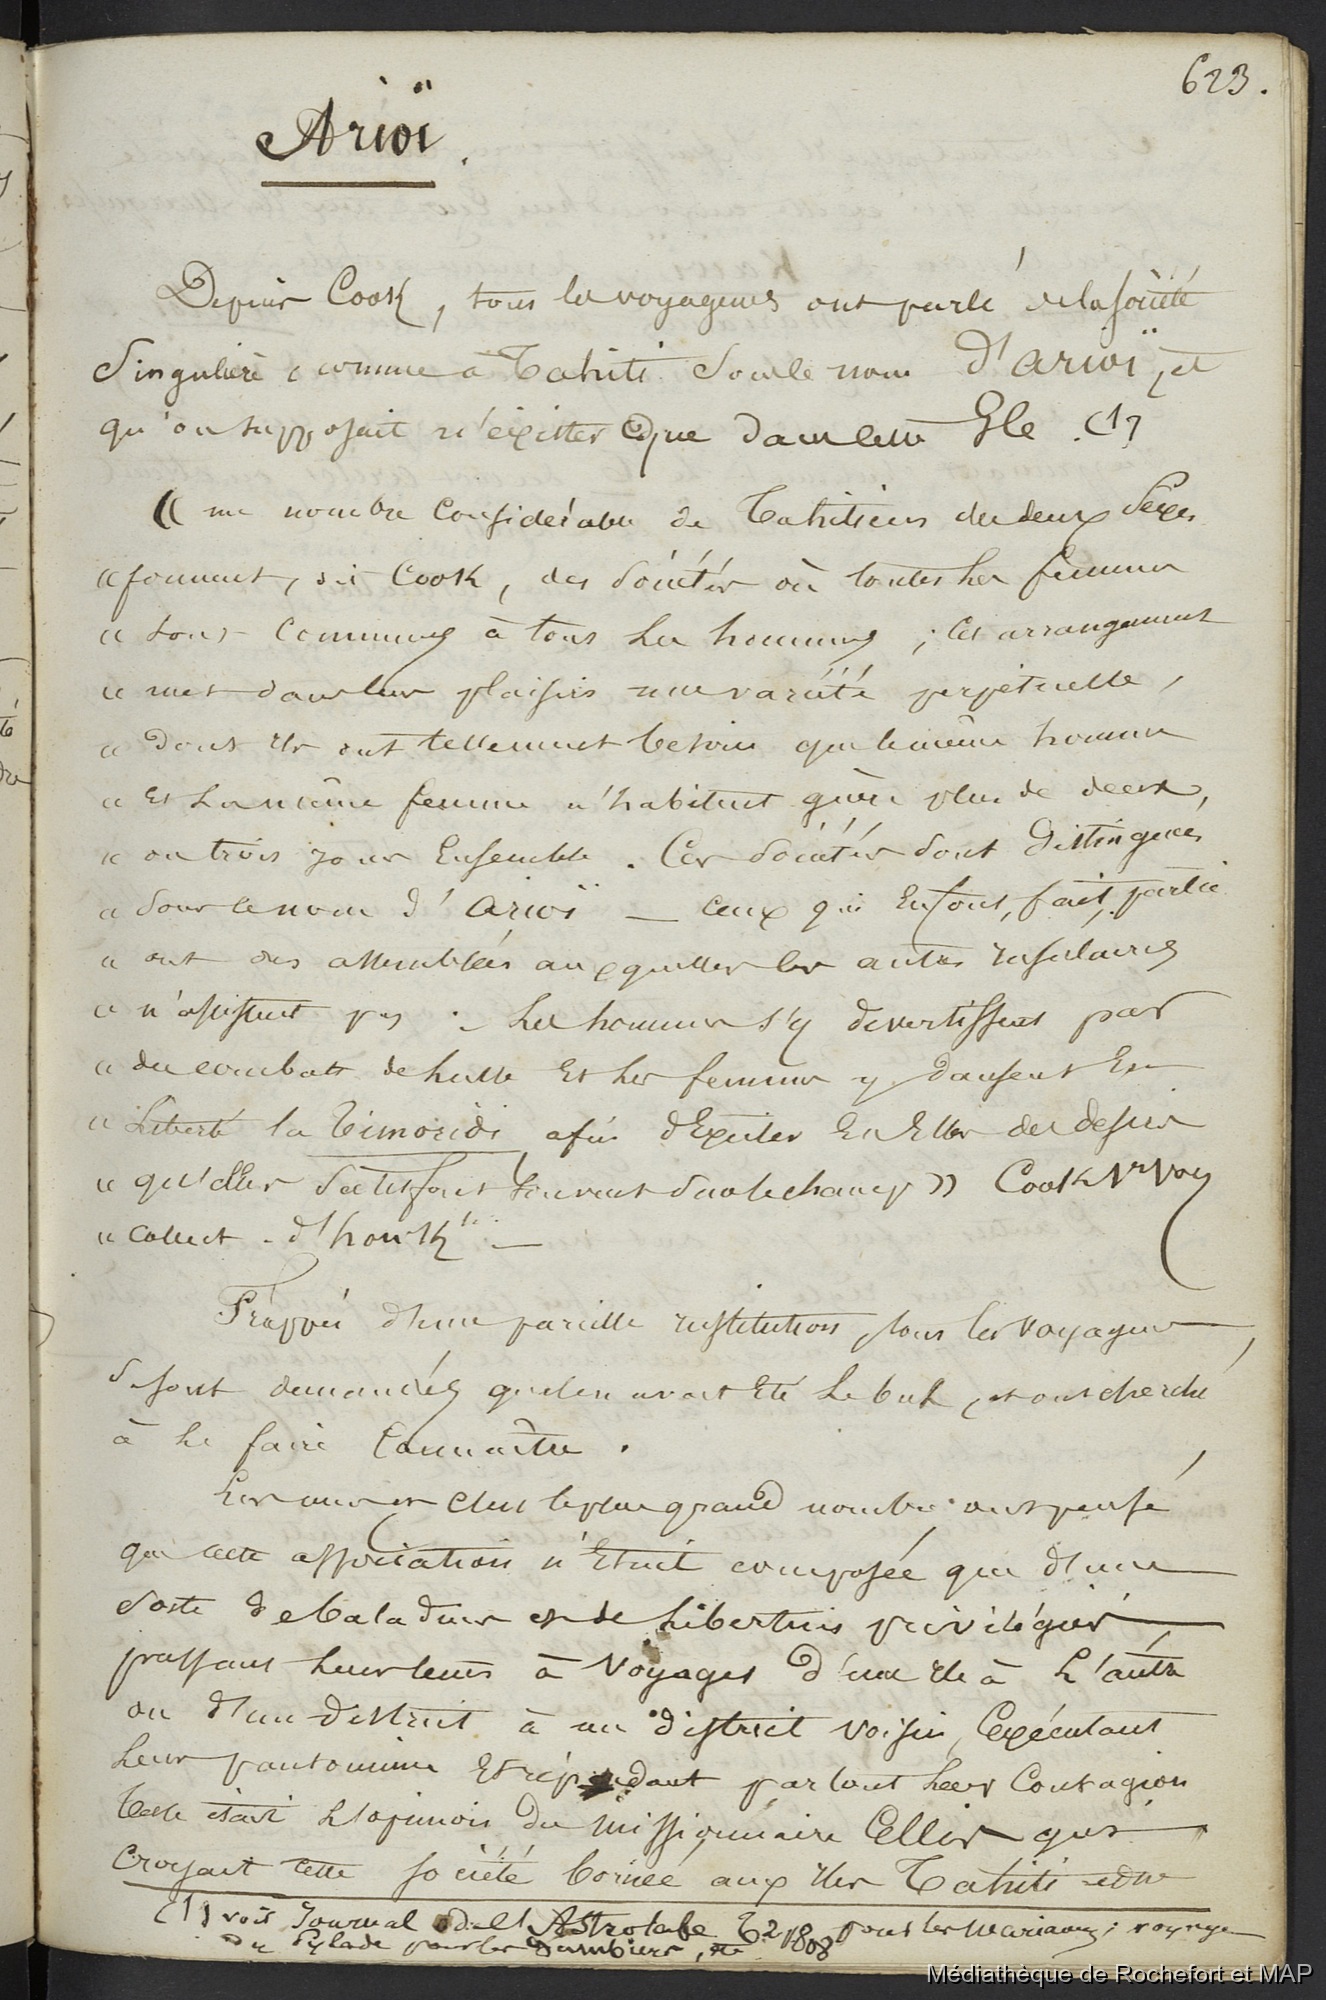 623.
Arioï.
Depuis Cook, tous les voyageurs ont parlé de la société
Singulière, connue à Tahiti sous le nom d'arioï, et
qu'on supposait n'éxister que dans cette Ile. (1)
« un nombre Considérable de Tahitiens des deux Sexes
« forment, dit Cook, des sociétés où toutes les femmes
« sont communes à tous les hommes ; cet arrangement
« met dans leurs plaisirs une variété perpétuelle,
« dont ils ont tellement besoin que le même homme
« Et la même femme n'habitent guère plus de deux,
« ou trois jours Ensemble. Ces sociétés sont Distinguées
« sous le nom d'Arioï — ceux qui En font, fait, partie
« ont des assemblées auxquelles les autres insulaires
« n'assistent pas : Les hommes s'y divertissent par
« des combats de lutte Et les femmes y dansent En
« Liberté la Timoridi, afin d'Exciter En Elles des desirs
« qu'elles satisfont souvent sur le champ » Cook 1er Voy
« collect. d'hawk —
Frappés d'une pareille institution, tous les voyageurs,
se sont demandés quel en avait Eté le but, et ont cherché
à le faire Connaître.
Les uns et c'est le plus grand nombre ont pensé
que cette association n'Etait composée que d'une
sorte de baladins et de libertins privilégiés
passant leur tems à voyager d'une ile à L'autre
ou d'un district à un district voisin, Exécutant
leur pantomime Et répandant partout leur Contagion
telle était L'opinion du missionnaire Ellis qui
croyait cette société bornée aux iles Tahiti
(1) voir Journal de l'Astrolabe T 2 p 808 pour les mariannes ; voyage
du Pylade pour les Gambiers, etc
Médiathèque de Rochefort et MAP